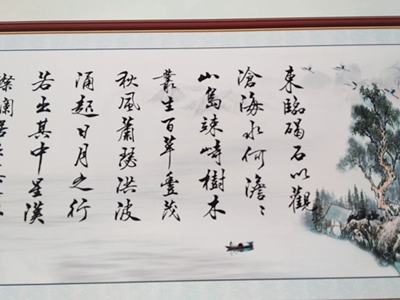 東臨碣石以觀
滄海水何澹〻
山島竦峙樹木
叢生百草豐茂
秋風蕭瑟洪波
涌起日月之行
若出其中星漢